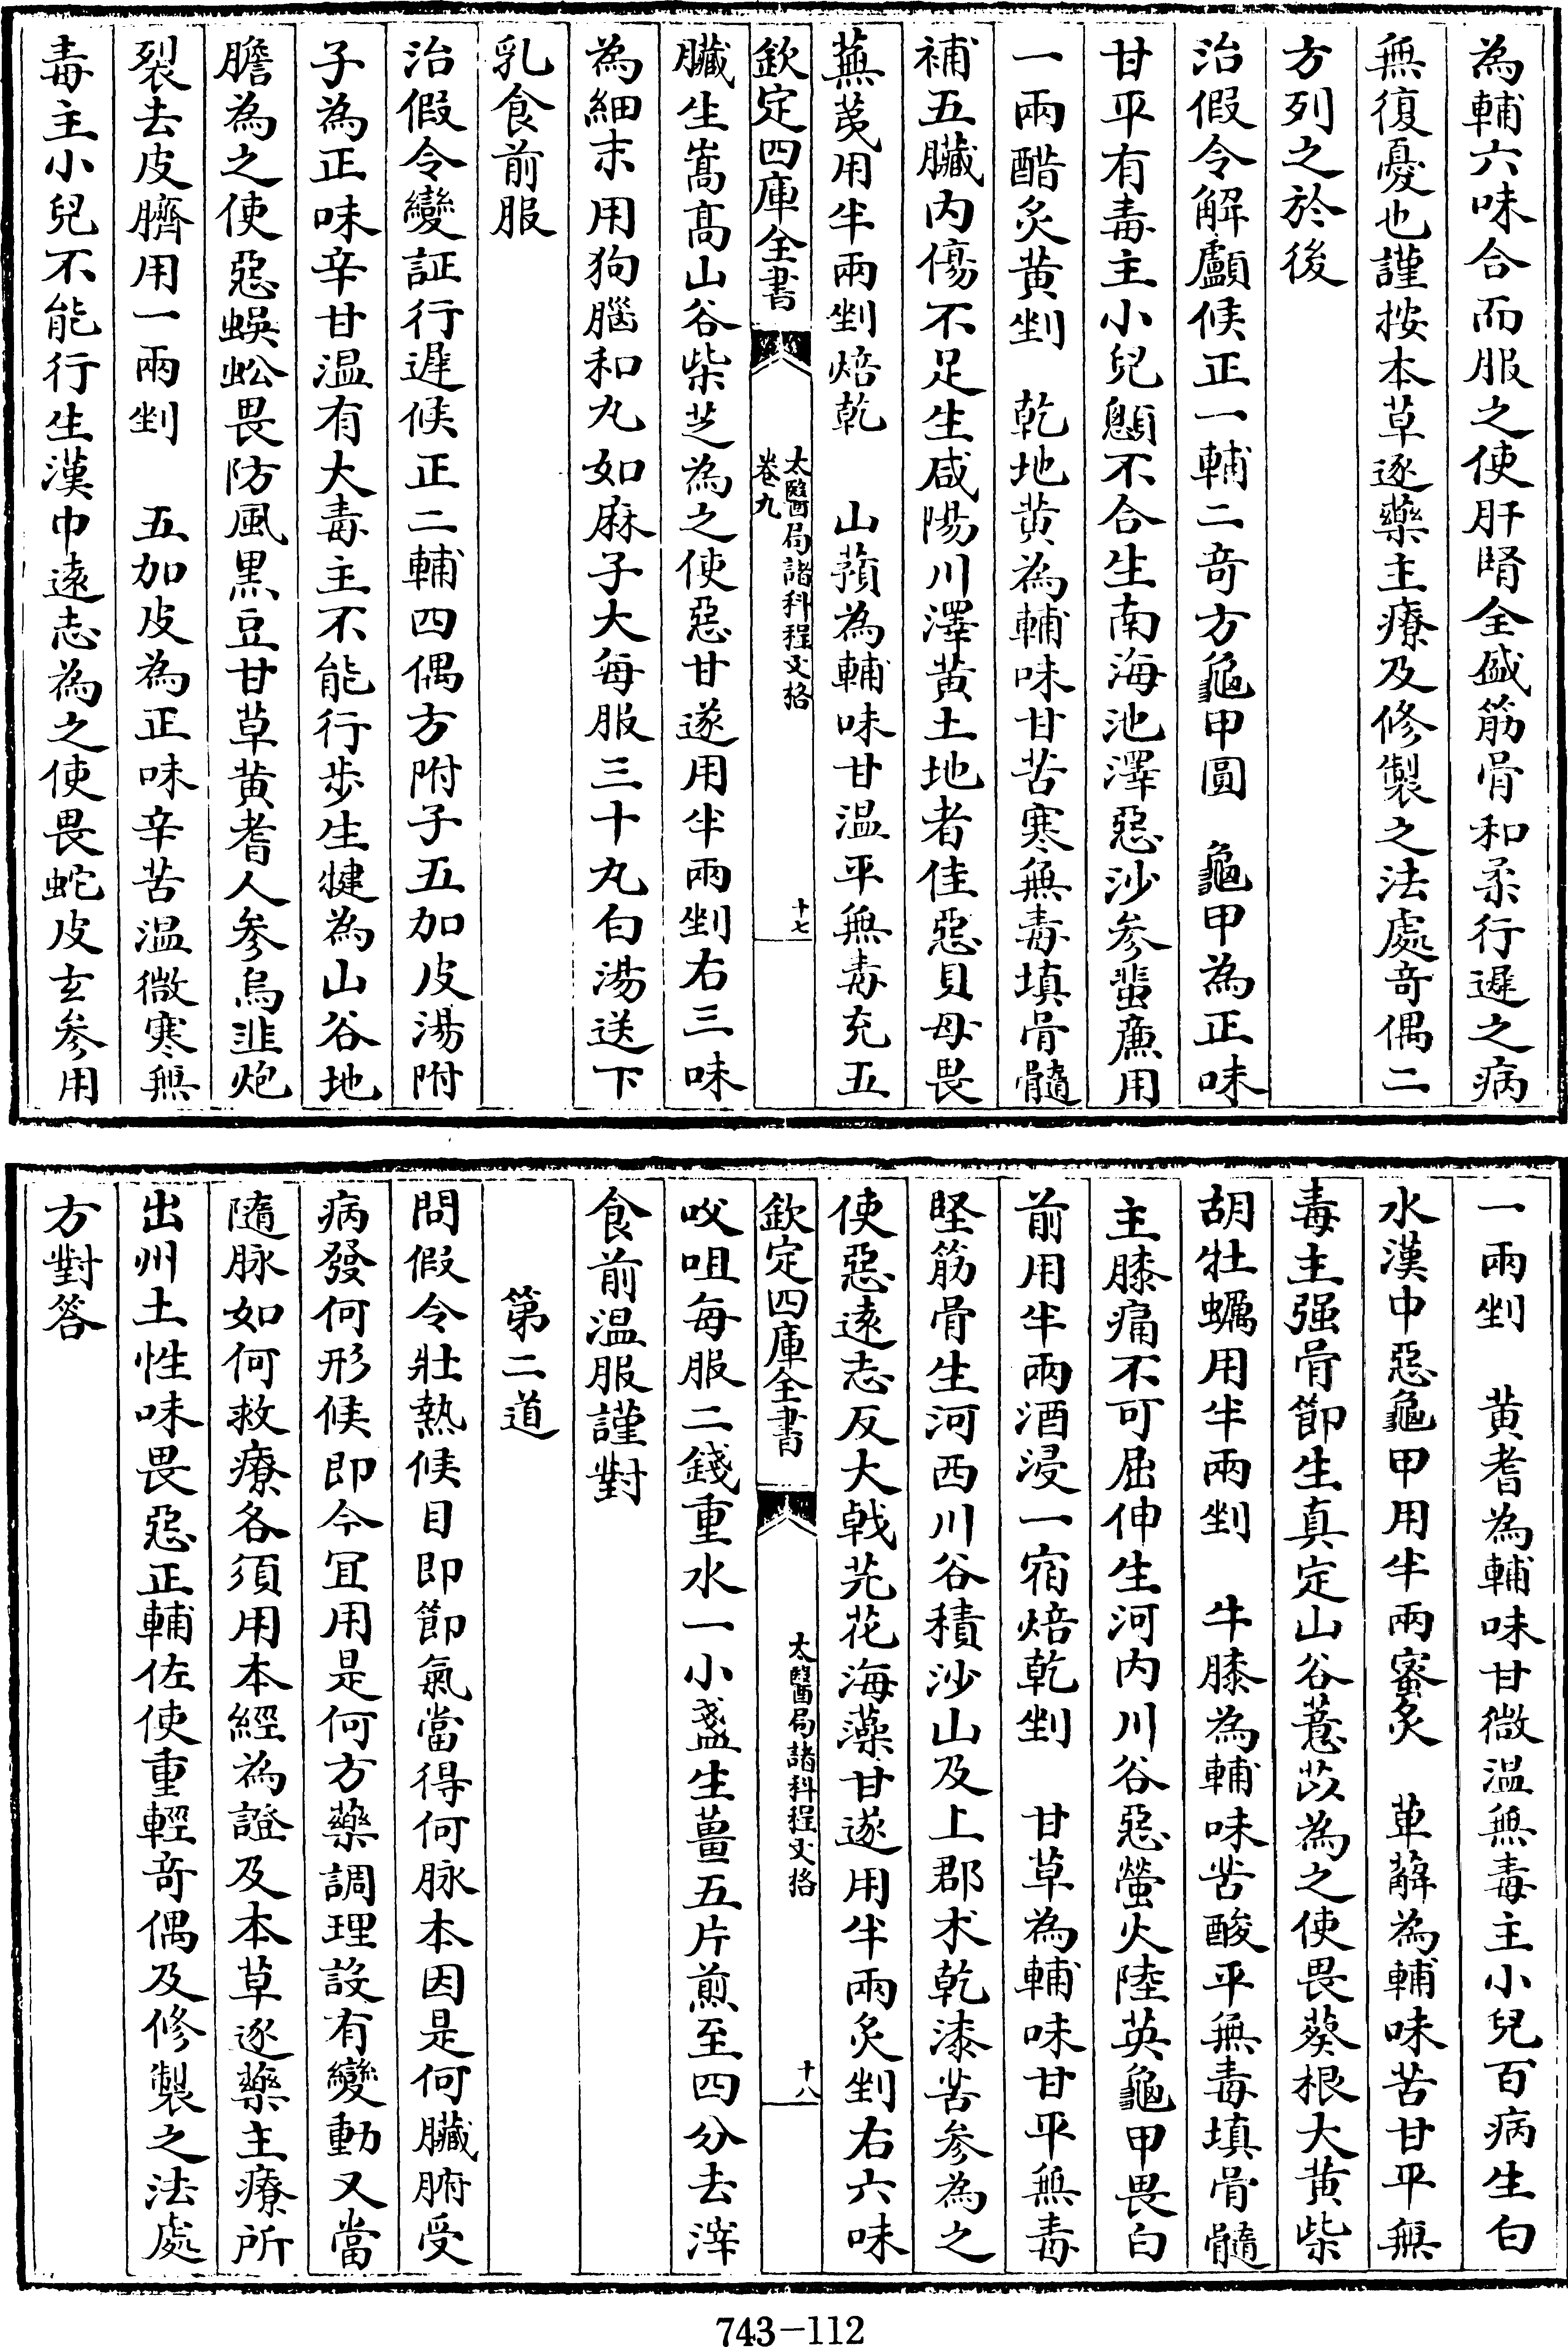 為輔六味合而服之使肝腎全盛筋骨和柔行遲之病
無復憂也謹按本草逐藥主療及修製之法處竒偶二
方列之於後
治假令解顱候正一輔二竒方龜甲圓　龜甲為正味
甘平有毒主小兒顖不合生南海池澤惡沙參蜚廉用
一兩醋炙黄剉　乾地黄為輔味甘苦寒無毒填骨髓
補五臟内傷不足生咸陽川澤黄土地者佳惡貝母畏
蕪荑用半兩剉焙乾　山蕷為輔味甘温平無毒充五
欽定四庫全書
太醫局諸科程文格
卷九
十七
臟生嵩高山谷柴芝為之使惡甘遂用半兩剉右三味
為細末用狗腦和丸如麻子大每服三十丸白湯送下
乳食前服
治假令變証行遲候正二輔四偶方附子五加皮湯附
子為正味辛甘温有大毒主不能行步生犍為山谷地
膽為之使惡蜈蚣畏防風黒豆甘草黄耆人參烏韭炮
裂去皮臍用一兩剉　五加皮為正味辛苦温微寒無
毒主小兒不能行生漢巾遠志為之使畏蛇皮玄參用
一兩剉　黄耆為輔味甘微温無毒主小兒百病生白
水漢中惡龜甲用半兩蜜炙　萆薢為輔味苦甘平無
毒主强骨節生真定山谷薏苡為之使畏葵根大黄柴
胡牡蠣用半兩剉　牛膝為輔味苦酸平無毒填骨髓
主膝痛不可屈伸生河内川谷惡螢火陸英龜甲畏白
前用半兩酒浸一宿焙乾剉　甘草為輔味甘平無毒
堅筋骨生河西川谷積沙山及上郡术乾漆苦參為之
使惡遠志反大戟芫花海藻甘遂用半兩炙剉右六味
欽定四庫全書
太醫局諸科程文格
十八
㕮咀每服二錢重水一小盞生薑五片煎至四分去滓
食前温服謹對
第二道
問假令壯熱候目即節氣當得何脉本因是何臟腑受
病發何形候即今宜用是何方藥調理設有變動又當
隨脉如何救療各須用本經為證及本草逐藥主療所
出州土性味畏惡正輔佐使重輕竒偶及修製之法處
方對答
743-112